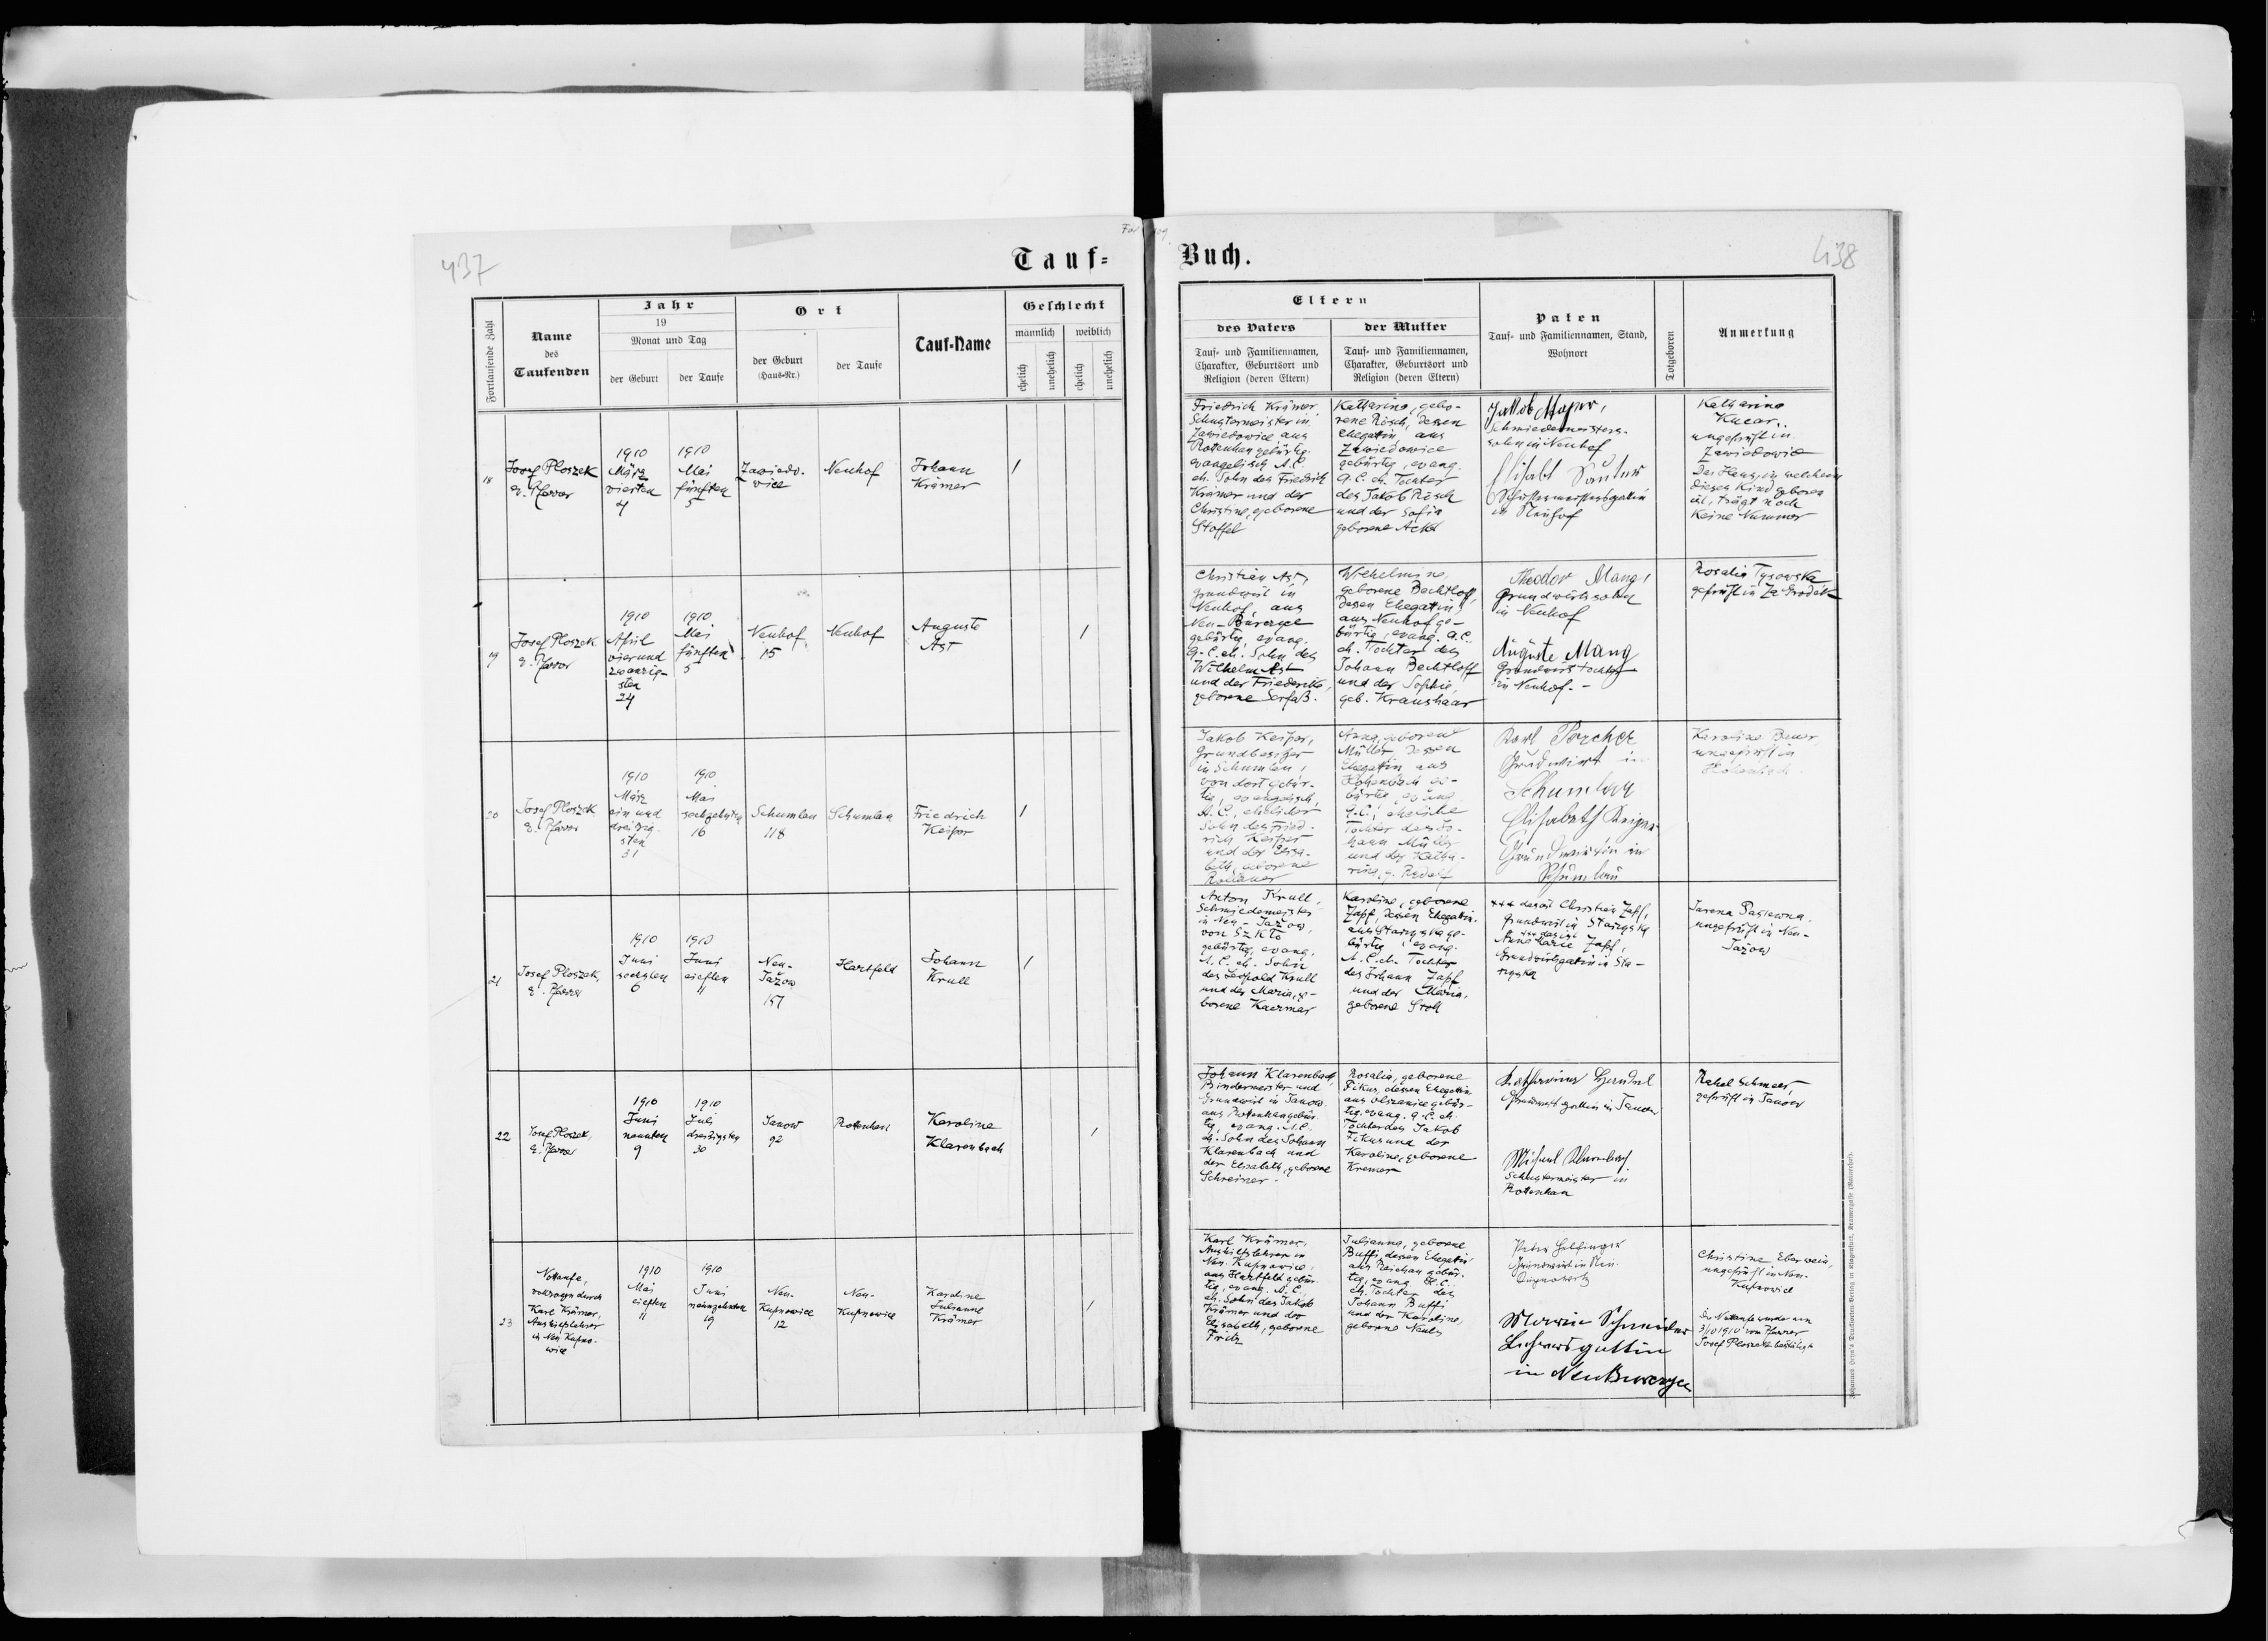 437
Tauf-
Buch.
438
Fortlaufende Zahl
Name
des
Taufenden
Jahr
19
Monat und Tag
der Geburt
der Taufe
Ort
der Geburt
(Haus-Nr.)
der Taufe
Tauf-Name
Geschlecht
männlich
weiblich
ehelich
unehelich
ehelich
unehelich
Eltern
des Vaters
Tauf- und Familiennamen,
Charakter, Geburtsort und
Religion (deren Eltern)
der Mutter
Tauf- und Familiennamen,
Charakter, Geburtsort und
Religion (deren Eltern)
Paten
Tauf- und Familiennamen, Stand,
Wohnort
Totgeboren
Anmerkung
18
Josef Ploszek
e. Pfarrer
1910
März
vierten
4
1910
Mai
fünften
5
Zawiedo-
wice
Neuhof
Johann
Krämer
/
Friedrich Krämer
Schustermeister in
Zawiedowice aus
Rottenhan gebürtig
evangelisch A.C.
eh. Sohn des Friedrich
Krämer und der
Christine, geborene
Stoffel
Katharina, gebo-
rene Rösch, dessen
Ehegatin aus
Zawiedowice
gebürtig, evang.
A.C. eh. Tochter
des Jakob Rösch
und der Sofia
geborene
Jakob
Schmiedemeisters-
sohn in Neuhof
Sauter
in Neuhof
Katharina
ungeprüft in
Zawiedowice
Das Haus, in welchem
dieses Kind geboren
ist, trägt noch
keine Nummer
19
Josef Ploszek
e. Pfarrer
1910
April
vierund
zwanzig-
sten
24
1910
Mai
fünften
5
Neuhof
15
Neuhof
Auguste
Ast
/
Christian Ast,
Grundwirt in
Neuhof, aus
Neu-Burczyce
gebürtig, evang.
A.C. eh. Sohn des
Wilhelm Ast
und der Friederike,
geborene Serfaß.
Wilhelmine,
geborene Bechtloff,
dessen Ehegatin,
aus Neuhof ge-
bürtig, evang. A.C.
eh. Tochter des
Johann Bechtloff
und der Sophie,
geb. Kraushaar
Theodor Mang,
Grundwirtssohn
in Neuhof
Auguste Mang
Grundwirtstochter
in Neuhof.-
Rosalia Tysowska
geprüft in
20
Josef Ploszek
e. Pfarrer
1910
März
ein und
dreißig-
sten
31
1910
Mai
sechzehnten
16
Schumlau
118
Schumlau
Friedrich
Keiper
/
Jakob Keiper,
Grundbesitzer
in Schumlau,
von dort gebür-
tig, evangelisch,
A.C., ehelicher
Sohn des Fried-
rich Keiper
und der Elisa-
beth, geborene
Anna, geborene
Müller, dessen
Ehegatin aus
bürtig, evang.
A.C., eheliche
Tochter des Jo-
hann Müller
und der Katha-
rina, g.
Karl Porcher
Grundwirt in
Schumlau
Elisabeth Keiper
Grundwirtin in
Schumlau
Karoline Bauer
ungeprüft in
21
Josef Ploszek,
e. Pfarrer
1910
Juni
sechsten
6
1910
Juni
elften
11
Neu-
Jažow
157
Hartfeld
Johann
Krull
/
Anton Krull,
Schmiedemeister
in Neu-Jažow,
von Szkło
gebürtig, evang.
A.C. eh. Sohn
des Leopold Krull
und der Maria, ge-
borene Kaczmar
Karoline, geborene
Zapf, dessen Ehegatin.
aus Starzyska ge-
bürtig, evang.
A.C. eh. Tochter
des Johann Zapf
und der Maria,
geborene Stoll
+++ das ist Christian Zapf,
Grundwirt in Starzyska
+++ das ist
Anna Marie Zapf,
Grundwirtsgatin in Sta-
rzyska
ungeprüft in Neu-
Jažow
22
Josef Ploszek,
e. Pfarrer
1910
Juni
neunten
9
1910
Juli
dreißigsten
30
Janow
92
Rottenhan
Karoline
Klarenbach
/
Johann Klarenbach,
Bindermeister und
Grundwirt in Janow.
aus Rottenhan gebür-
tig, evang. A.C.
eh. Sohn des Johann
Klarenbach und
der Elisabeth, geborene
Schreiner.
Rosalia, geborene
Fikus, dessen Ehegatin,
aus Olszanice gebür-
tig, evang. A.C. eh.
Tochter des Jakob
Fikus und der
Karoline, geborene
Kremer
Katharina
Grundwirtsgattin in Janow
Michael Klarenbach
Schustermeister in
Rottenhan
Rahel Schmeer
geprüft in Janow
23
Nottaufe,
vollzogen durch
Karl Krämer,
Aushilfslehrer
in Neu Kupno-
wice
1910
Mai
elften
11
1910
Juni
neunzehnten
19
Neu-
Kupnowice
12
Neu-
Kupnowice
Karoline
Julianne
Krämer
/
Karl Krämer,
Aushilfslehrer in
Neu-Kupnowice,
aus Hartfeld gebür-
tig, evang. A.C.,
eh. Sohn des Jakob
Krämer und der
Elisabeth, geborene
Fritz
Julianna, geborene
Buffi, dessen Ehegatin
aus Reichau gebür-
tig, evang. H.C.
eh. Tochter des
Johann Buffi
und der Karoline,
geborene
Peter
Grundwirt in Neu-
Marie Schneider
Lehrersgattin
in Neu Burczyce
Christine Eberwein,
ungeprüft in Neu-
Kupnowice
Die Nottaufe wurde am
3/10 1910 vom Pfarrer
Josef Ploszek bestätigt
Johannes Heyn's Drucksorten-Verlag in Klagenfurt, Kramergasse (Mainerhof).